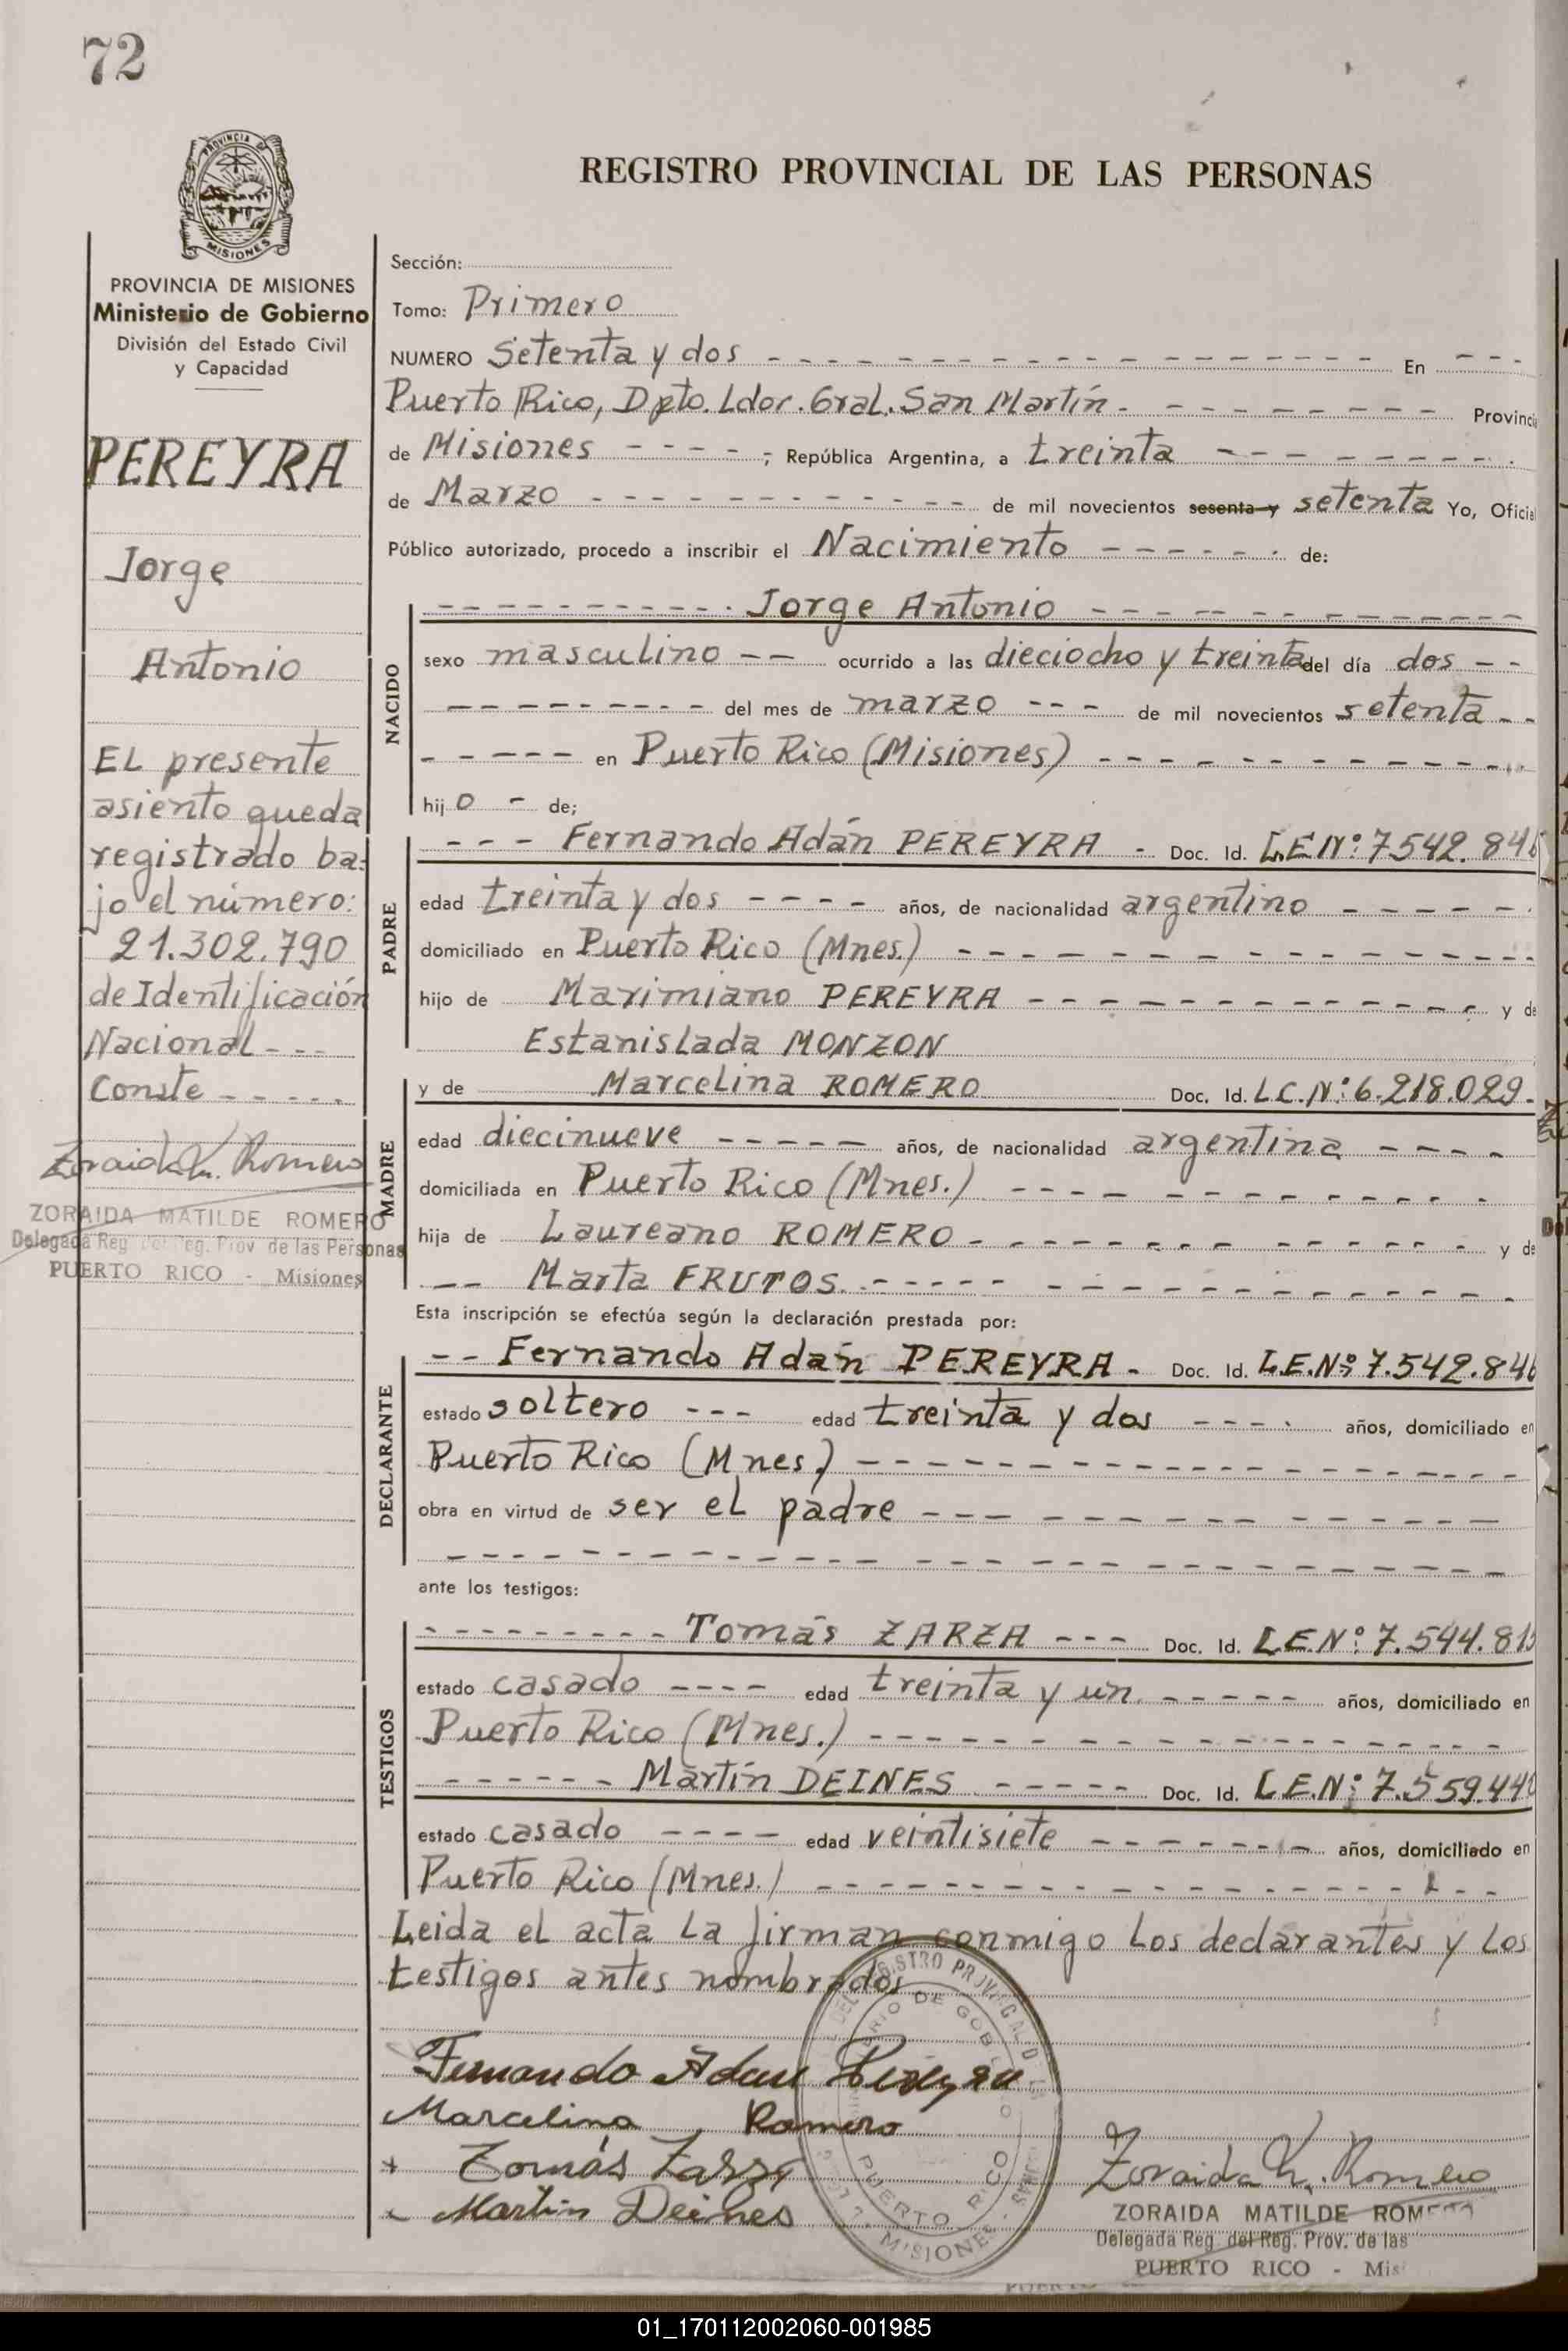 72
PROVINCIA DE
MISIONES
PROVINCIA DE MISIONES
Ministerio de Gobierno
División del Estado Civil
y Capacidad
PEREYRA
Jorge
Antonio
EL presente
asiento queda
registrado ba-
jo el número:
21.302.790
de Identificación
Nacional - - -
Conste - - - - -
Zoraida M. Romero
ZORAIDA MATILDE ROMERO
Delegada Reg. del Reg. Prov. de las Personas
PUERTO RICO - Misiones
REGISTRO PROVINCIAL DE LAS PERSONAS
Sección:
Tomo: Primero
NUMERO Setenta y dos - - - En - - -
Puerto Rico, Dpto. Ldor. Gral. San Martín. - - - Provinci
de Misiones - - - - ; República Argentina, a treinta - - -
de Marzo - - - de mil novecientos sesenta y setenta Yo, Oficial
Público autorizado, procedo a inscribir el Nacimiento - - - de:
NACIDO
- - - Jorge Antonio - - -
sexo masculino - - ocurrido a las dieciocho y treinta del día dos - -
- - - del mes de marzo - - - de mil novecientos setenta - -
- - - en Puerto Rico (Misiones) - - -
hij o - de;
PADRE
- - - Fernando Adán PEREYRA - Doc. Id. L.E.Nº: 7.542.846
edad treinta y dos - - - - años, de nacionalidad argentino - - -
domiciliado en Puerto Rico (Mnes.) - - -
hijo de Maximiano PEREYRA - - - y de
Estanislada MONZON
MADRE
y de Marcelina ROMERO Doc. Id. L.C.Nº: 6.218.029.-
edad diecinueve - - - - - años, de nacionalidad argentina - - - -
domiciliada en Puerto Rico (Mnes.) - - -
hija de Laureano ROMERO - - - y de
- - Marta FRUTOS. - - -
Esta inscripción se efectúa según la declaración prestada por:
DECLARANTE
- - Fernando Adán PEREYRA - Doc. Id. L.E.Nº: 7.542.846
estado soltero - - - edad treinta y dos - - - - años, domiciliado en
Puerto Rico (Mnes.) - - -
obra en virtud de ser el padre - - -
- - -
ante los testigos:
TESTIGOS
- - - Tomás ZARZA - - - Doc. Id. L.E.Nº: 7.544.81
estado casado - - - - edad treinta y un - - - - - años, domiciliado en
Puerto Rico (Mnes.) - - -
- - - Martín DEINES - - - - - Doc. Id. L.E.Nº: 7.559.44
estado casado - - - - edad veintisiete - - - años, domiciliado en
Puerto Rico (Mnes.) - - -
Leida el acta la firman conmigo los declarantes y los
testigos antes nombrados
Fernando Adan Pereyra
Marcelina Romero
Tomás Zarza
Martin Deines
PUERTO RICO
MISIONES
Zoraida M. Romero
ZORAIDA MATILDE ROMERO
Delegada Reg. del Reg. Prov. de las
PUERTO RICO - Mis
01_170112002060-001985